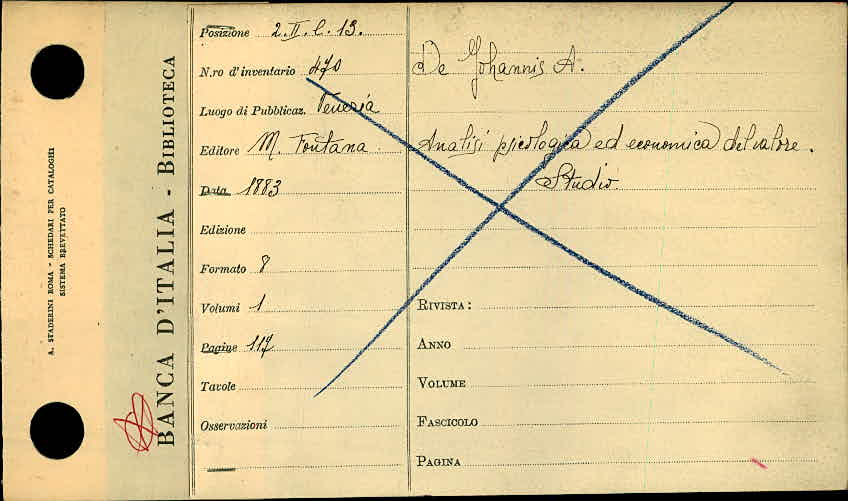 A. STADERINI ROMA - SCHEDARI PER CATALOGHI
SISTEMA BREVETTATO
BANCA D'ITALIA - BIBLIOTECA
Posizione 2. II. C. 13.
N.ro d'inventario 470
Luogo di Pubblicaz. Venezia
Editore M. Fontana
Data 1883
Edizione
Formato 8
Volumi 1
Pagine 117
Tavole
Osservazioni
De Johannis A.
Analisi psicologica ed economica del valore.
Studio.
RIVISTA:
ANNO
VOLUME
FASCICOLO
PAGINA